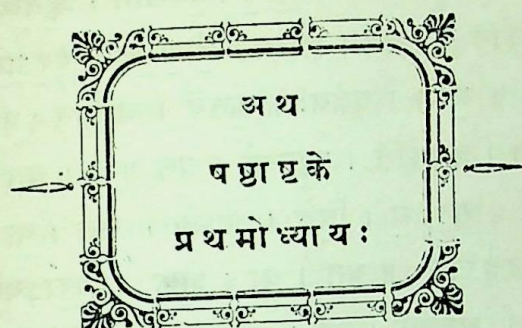 अथ
षष्ठाष्टके
प्रथमोध्यायः